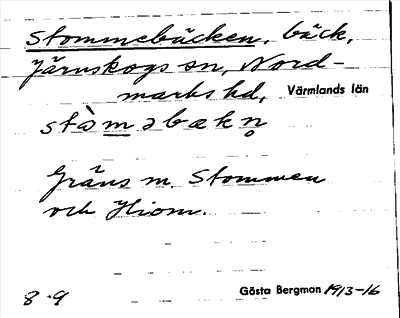 Stommebäcken, bäck,
Järnskogs sn, Nord-
marks hd, Värmlands län
stàm̲əbækn̥
Gräns m. Stommen
och Hiom.
8 · 9 Gösta Bergman 1913-16